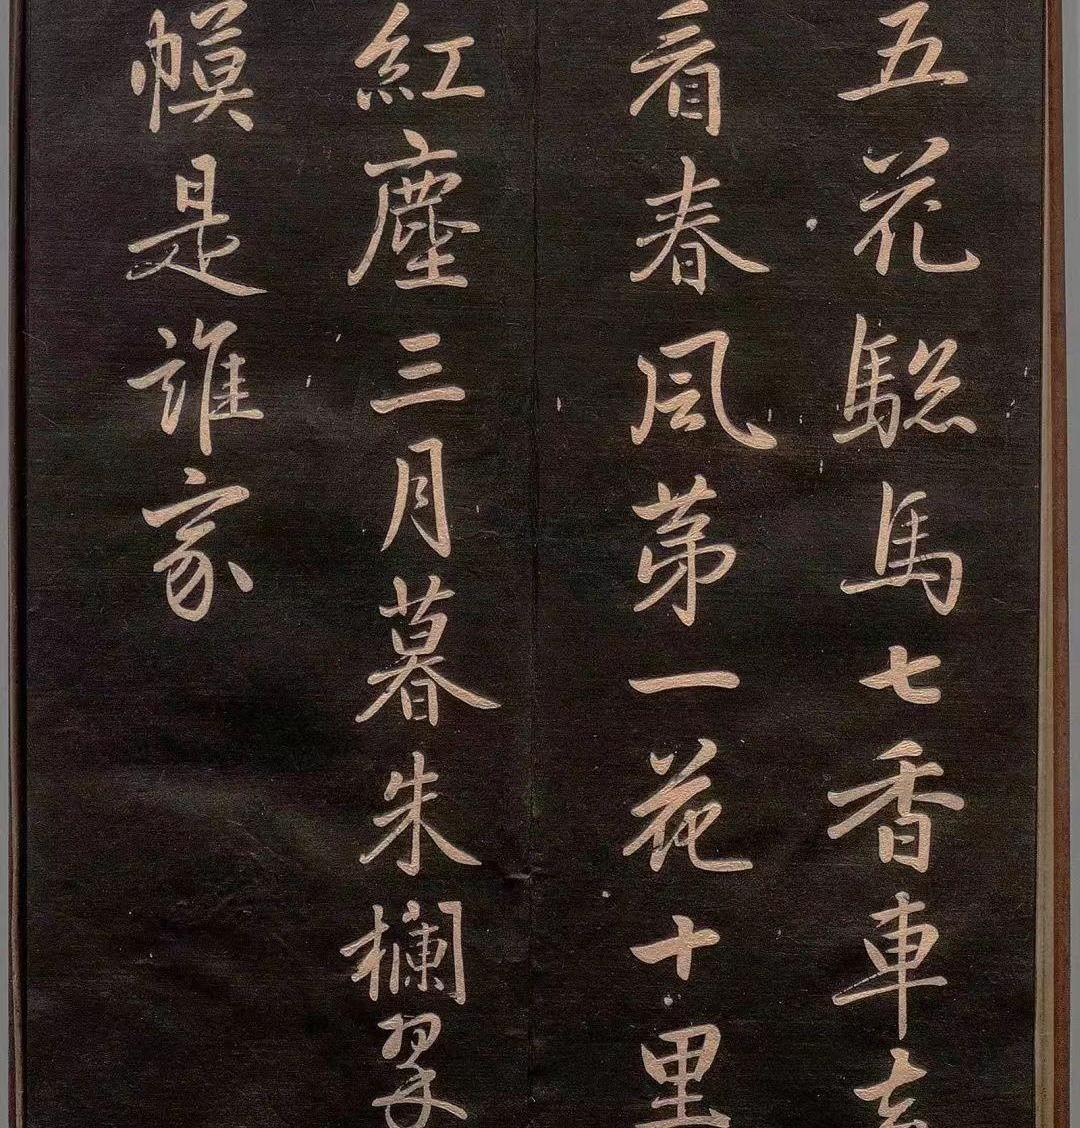 五花驄馬七香車去
看春風第一花十里
紅塵三月暮朱欄翠
幙是誰家